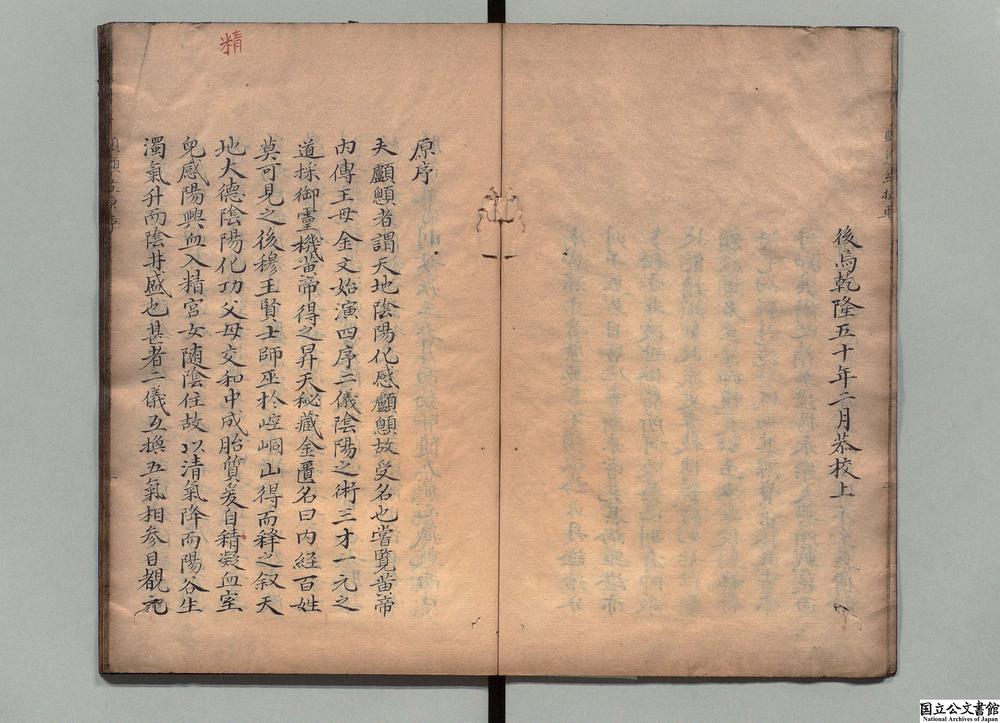 後焉乾隆五十年二月恭校上
精
原序
夫顱顖者謂天地陰陽化感顱顖故受名也嘗覧黄帝
内傳王母金文始演四序二儀陰陽之術三才一元之
道採御靈機黄帝得之昇天秘藏金匱名曰内経百姓
莫可見之後穆王賢士師巫於崆峒山得而釋之叙天
地大德陰陽化功父母交和中成胎質爰自精凝血室
兒感陽興血入精宮女随陰住故以清氣降而陽谷生
濁氣升而陰井盛也甚者二儀互換五氣相参自觀元
国立公文書館
National Archives of Japan